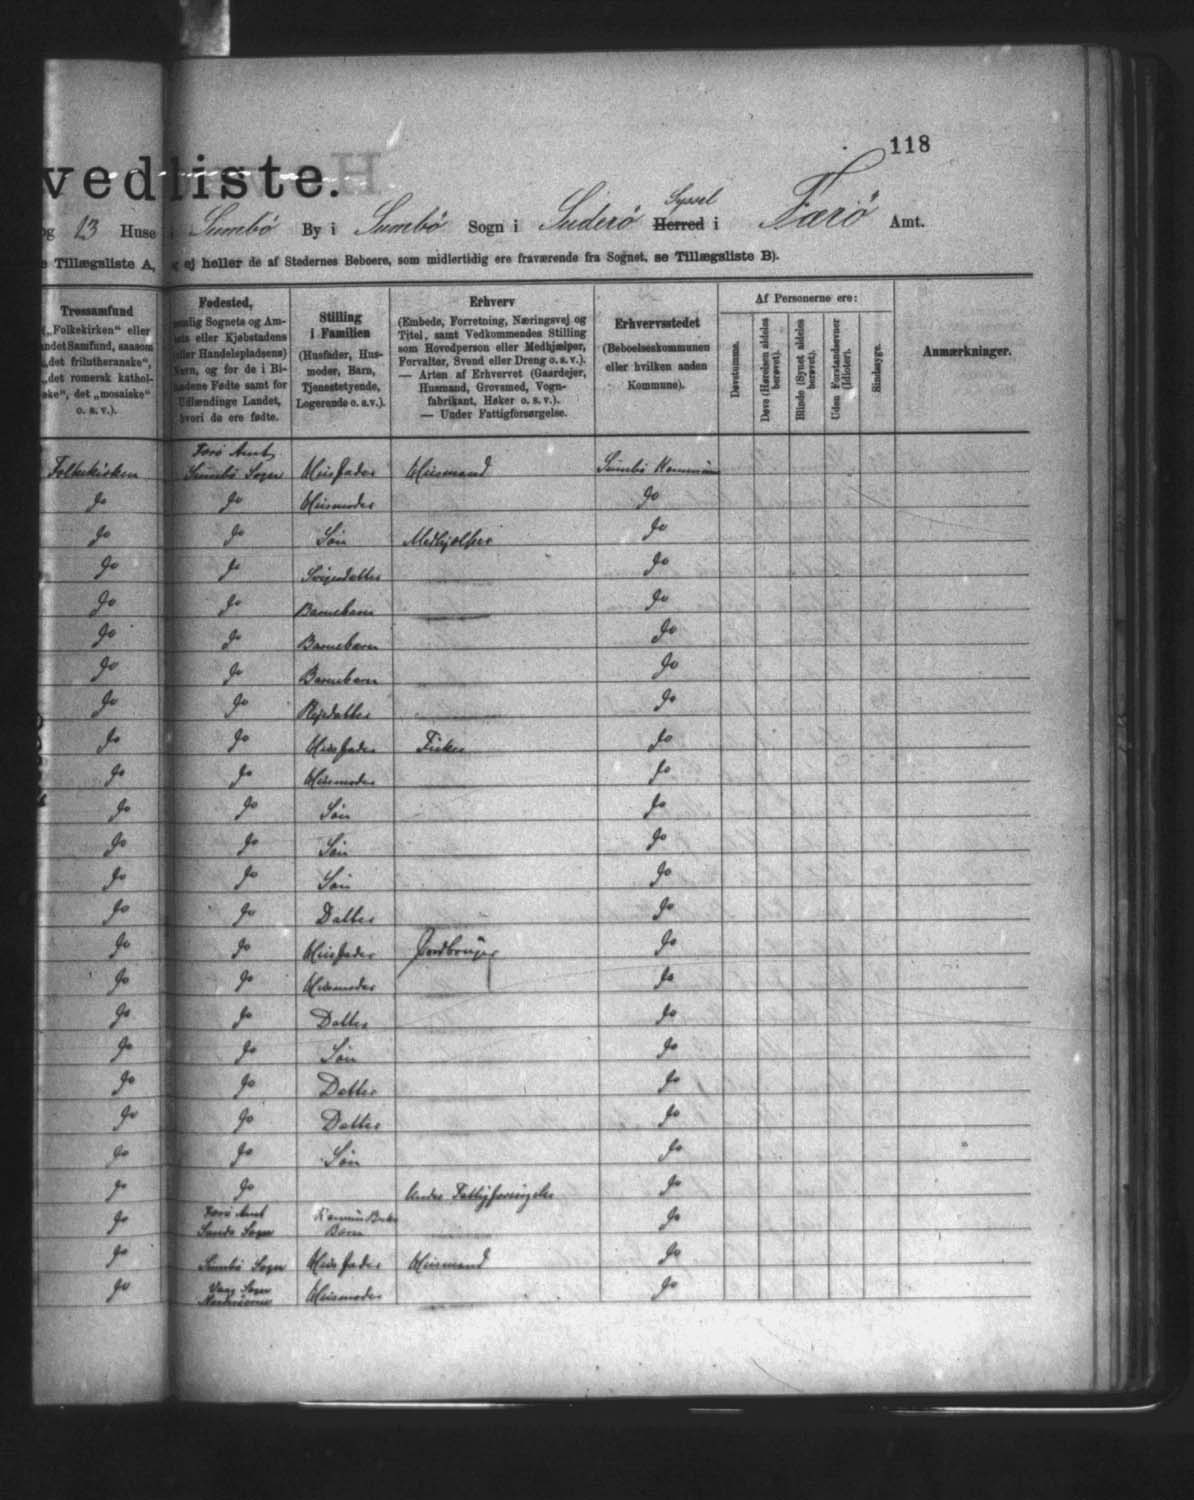 118
vedliste.
og 13 Huse i Sumbø By i Sumbø Sogn i Suderø Syssel Herred i Færø Amt.
e Tillægsliste A, og ej heller de af Stedernes Beboere, som midlertidig ere fraværende fra Sognet, se Tillægsliste B).
Trossamfund
(„Folkekirken“ eller
andet Samfund, saasom
„det frilutheranske“,
„det romersk kathol-
ske“, det „mosaiske“
o. s. v.).
Fødested,
nemlig Sognets og Am-
tets eller Kjøbstadens
(eller Handelspladsens)
Navn, og for de i Bi-
landene Fødte samt for
Udlændinge Landet,
hvori de ere fødte.
Stilling
i Familien
(Husfader, Hus-
moder, Barn,
Tjenestetyende,
Logerende o. s. v.).
Erhverv
(Embede, Forretning, Næringsvej og
Titel, samt Vedkommendes Stilling
som Hovedperson eller Medhjælper,
Forvalter, Svend eller Dreng o. s. v.).
— Arten af Erhvervet (Gaardejer,
Husmand, Grovsmed, Vogn-
fabrikant, Høker o. s. v.).
— Under Fattigforsørgelse.
Erhvervsstedet
(Beboelseskommunen
eller hvilken anden
Kommune).
Af Personerne ere:
Døvstumme.
Døve (Hørelsen aldeles
berøvet).
Blinde (Synet aldeles
berøvet).
Uden Forstandsevner
(Idioter).
Sindssyge.
Anmærkninger.
Færø Amt
Folkekirken Sumbø Sogn Husfader Husmand Sumbø Kommune
do do Husmoder do
do do Søn Medhjælper do
do do Svigerdatter do
do do Barnebarn do
do do Barnebarn do
do do Barnebarn do
do do Plejedatter do
do do Husfader Fisker do
do do Husmoder do
do do Søn do
do do Søn do
do do Søn do
do do Datter do
do do Husfader Jordbruger do
do do Husmoder do
do do Datter do
do do Søn do
do do Datter do
do do Datter do
do do Søn do
do do Under Fattigforsørgelse do
Færø Amt
do Sands Sogn Barn do
do Sumbø Sogn Husfader Husmand do
Vaag Sogn
do Husmoder do